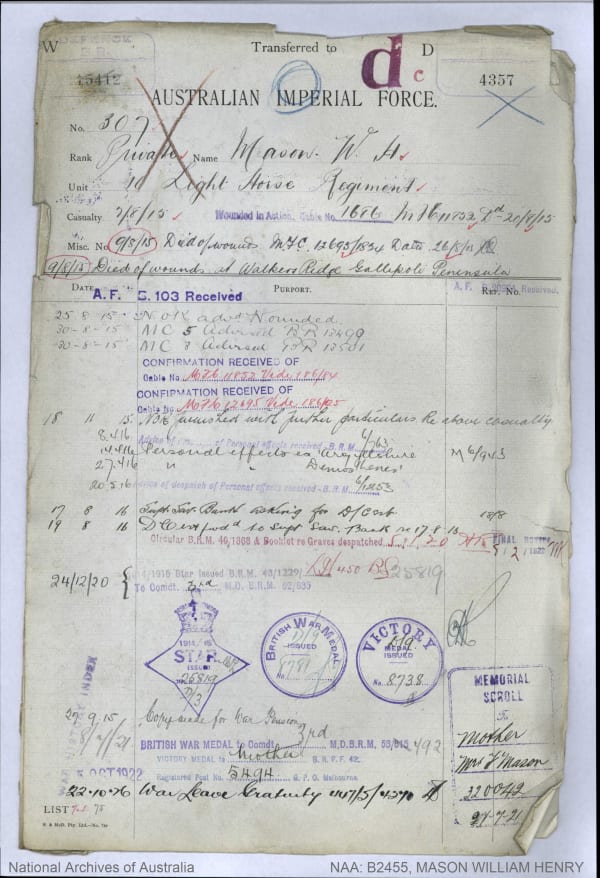 W Transferred to D
DEFENCE
B.R.
d c
15412
4357
AUSTRALIAN IMPERIAL FORCE.
No. 307
Rank Private Name Mason. W. H
Unit Light Horse Regiment
Casualty 7/8/15 Wounded in Action, Cable No. 1686 M.F.C 11852 Dd 21/8/15
Misc. No. 9/8/15 Died of wounds M.F.C. 12695 Date 26/8/15
9/8/15 Died of wounds at Walkers Ridge Gallipoli Peninsula
DATE PURPORT. REF. NO.
A.F. B.103 Received
25-8-15 N.O.K advd Wounded.
30-8-15 MC 5 Advised BR 13499
30-8-15 MC Advised BR 13501
CONFIRMATION RECEIVED OF
Cable No. MFC 11852 Vide 186/84
CONFIRMATION RECEIVED OF
Cable No. MFC 12695 Vide 186/85
18 11 15 NOK furnished with further particulars Re above casualty
8.4.16 Advice of of Personal effects received - B.R.M.
14.4.16 Personal effects ex "Argyllshire" M 6/943
27.4.16 " " Demosthenes"
20.5.16 Advice of despatch of Personal effects received - B.R.M. 6/1253
17 8 16 Supt Sav. Bank asking for D/Cert
19 8 16 D Cert fwd to Supt Sav. Bank re 17.8.15
Circular B.R.M. 40/1868 & Booklet re Graves despatched
24/12/20 1914/1915 Star Issued B.R.M. 43/1229/ 25819
To Comdt. 3rd M.D. B.R.M. 52/635
1914-15
STAR
ISSUED
25819
D/3
BRITISH WAR MEDAL
ISSUED
No. 8781
VICTORY
MEDAL
ISSUED
No. 8738
MEMORIAL
SCROLL
To
Mother
Mrs F Mason
320042
27-7-21
WAR HISTORY INDEX
27.9.15 Copy made for War Pension
BRITISH WAR MEDAL to Comdt. 3rd M.D. B.R.M. 53/615 492
VICTORY MEDAL to Mother B.R.P.F. 42.
OCT 1922 Registered Post No. 5494 G.P.O. Melbourne.
22-10-76 War Leave Gratuity
LIST
National Archives of Australia NAA: B2455, MASON WILLIAM HENRY